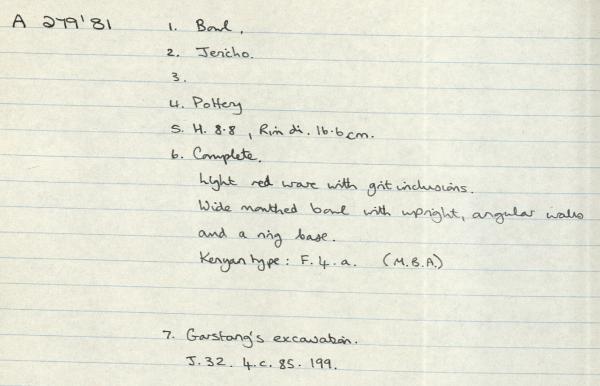 A 279'81
1. Bowl.
2. Jericho.
3.
4. Pottery
5. H. 8.8, Rim di. 16.6cm.
6. Complete.
Light red ware with grit inclusions.
Wide mouthed bowl with upright, angular walls
and a ring base.
Kenyan type: F.4.a. (M.B.A)
7. Garstang's excavation.
J. 32. 4.c. 85. 199.